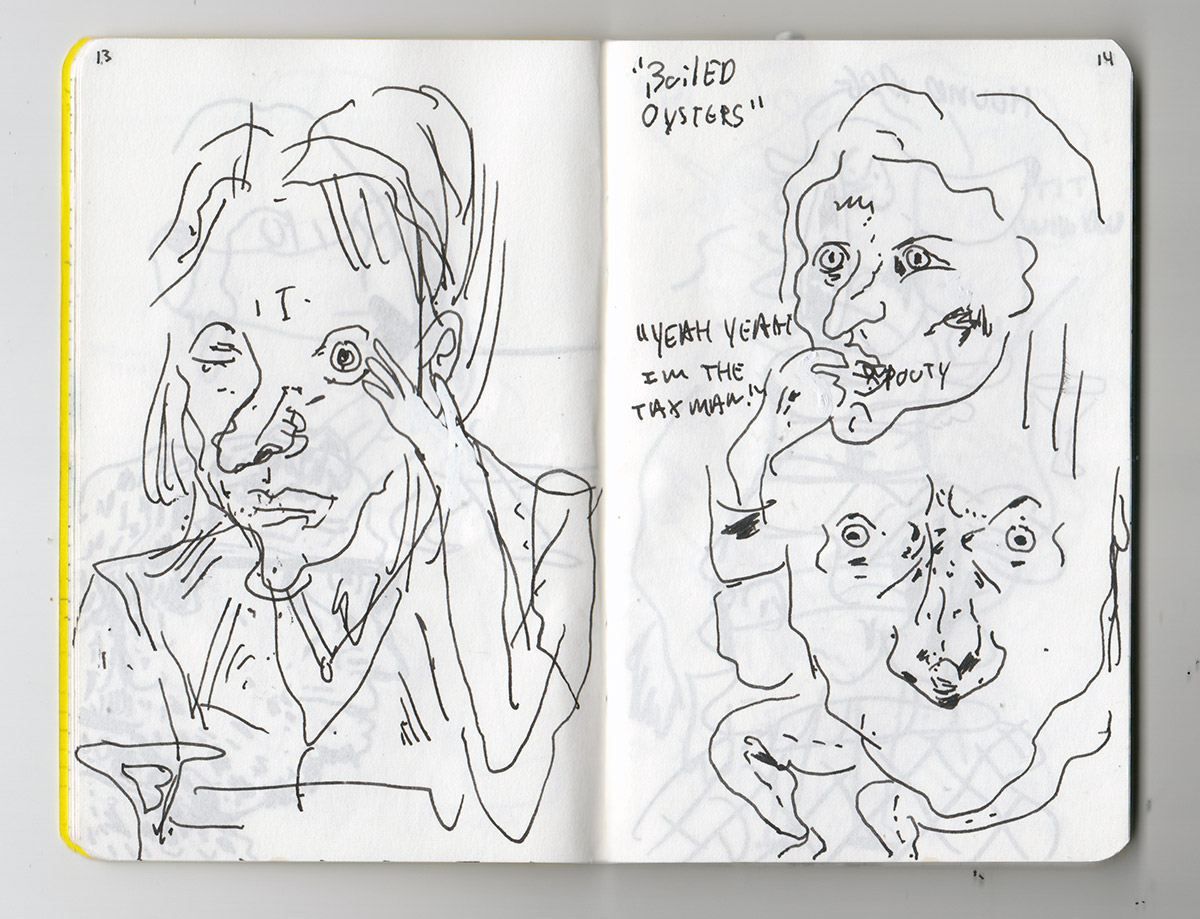 13
14
"BOILED
OYSTERS"
"YEAH YEAH
IM THE
TAX MAN."
POUTY